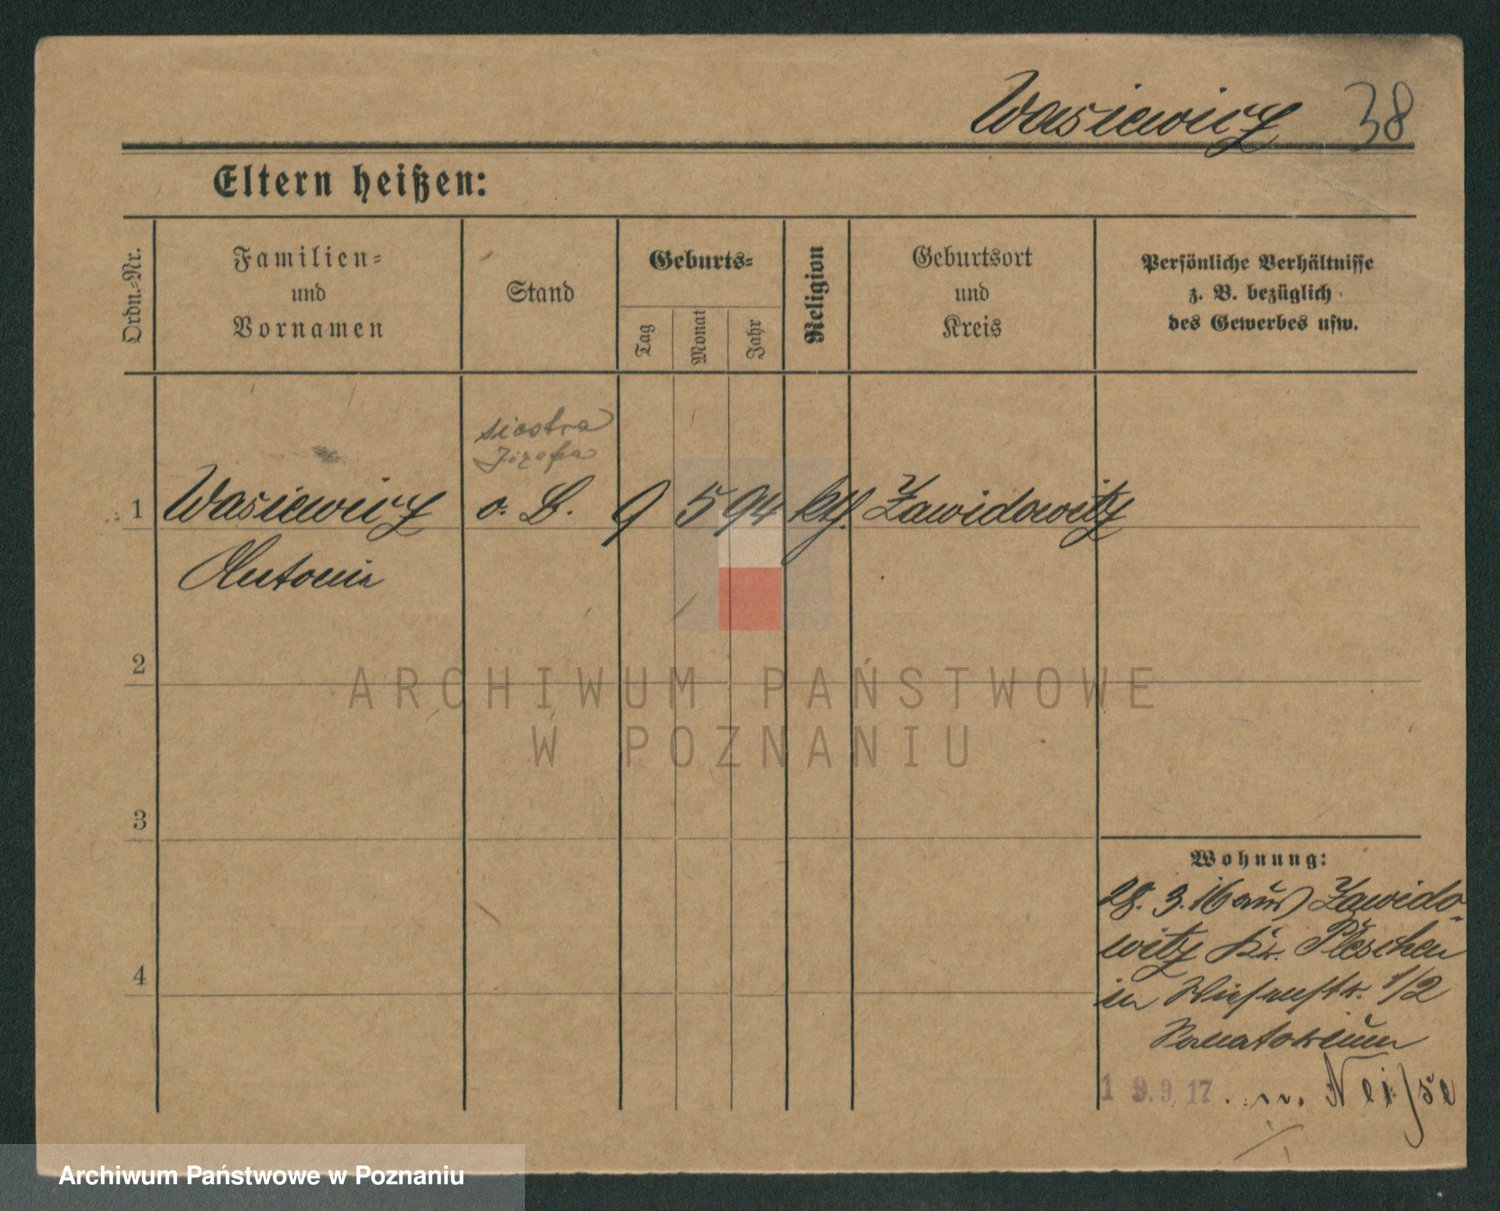 Wasiewicz 38
Eltern heißen:
Ordn.-Nr.
Familien-
und
Vornamen
Stand
Geburts-
Tag
Monat
Jahr
Religion
Geburtsort
und
Kreis
Persönliche Verhältnisse
z. B. bezüglich
des Gewerbes usw.
siostra
Józefa
1 Wasiewicz o. B. 9 5 94 kth. Zawidowitz
Antonie
2
3
4
ARCHIWUM PAŃSTWOWE
W POZNANIU
Wohnung:
28. 3. 16 aus Zawido-
witz Kr. Pleschen
in Wiesenstr. 1/2
Sanatorium
19. 9. 17. n. Neisse
Archiwum Państwowe w Poznaniu